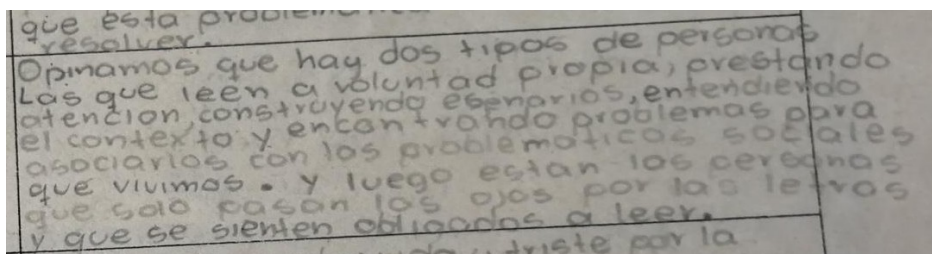 que esta
resolver.
Opinamos que hay dos tipos de personas
Las que leen a voluntad propia, prestando
atencion construyendo esenarios, entendiendo
el contexto y encontrando problemas para
asociarlos con los problematicas sociales
que vivimos. y luego estan las personas
que solo pasan los ojos por las letras
y que se sienten obligados a leer.
triste por la